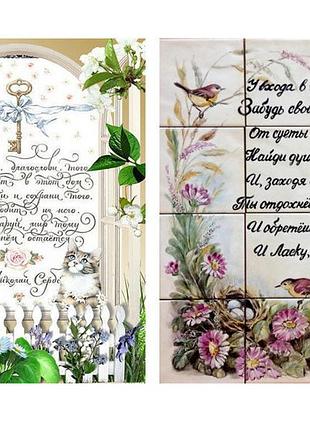 благослови того,
в этот дом
и сохрани того,
него.
мир тому
остаётся
У входа в
Забудь сво
От суеты
Найди душ
И, заходя
Ты отдохнё
И обретёш
И Ласку,